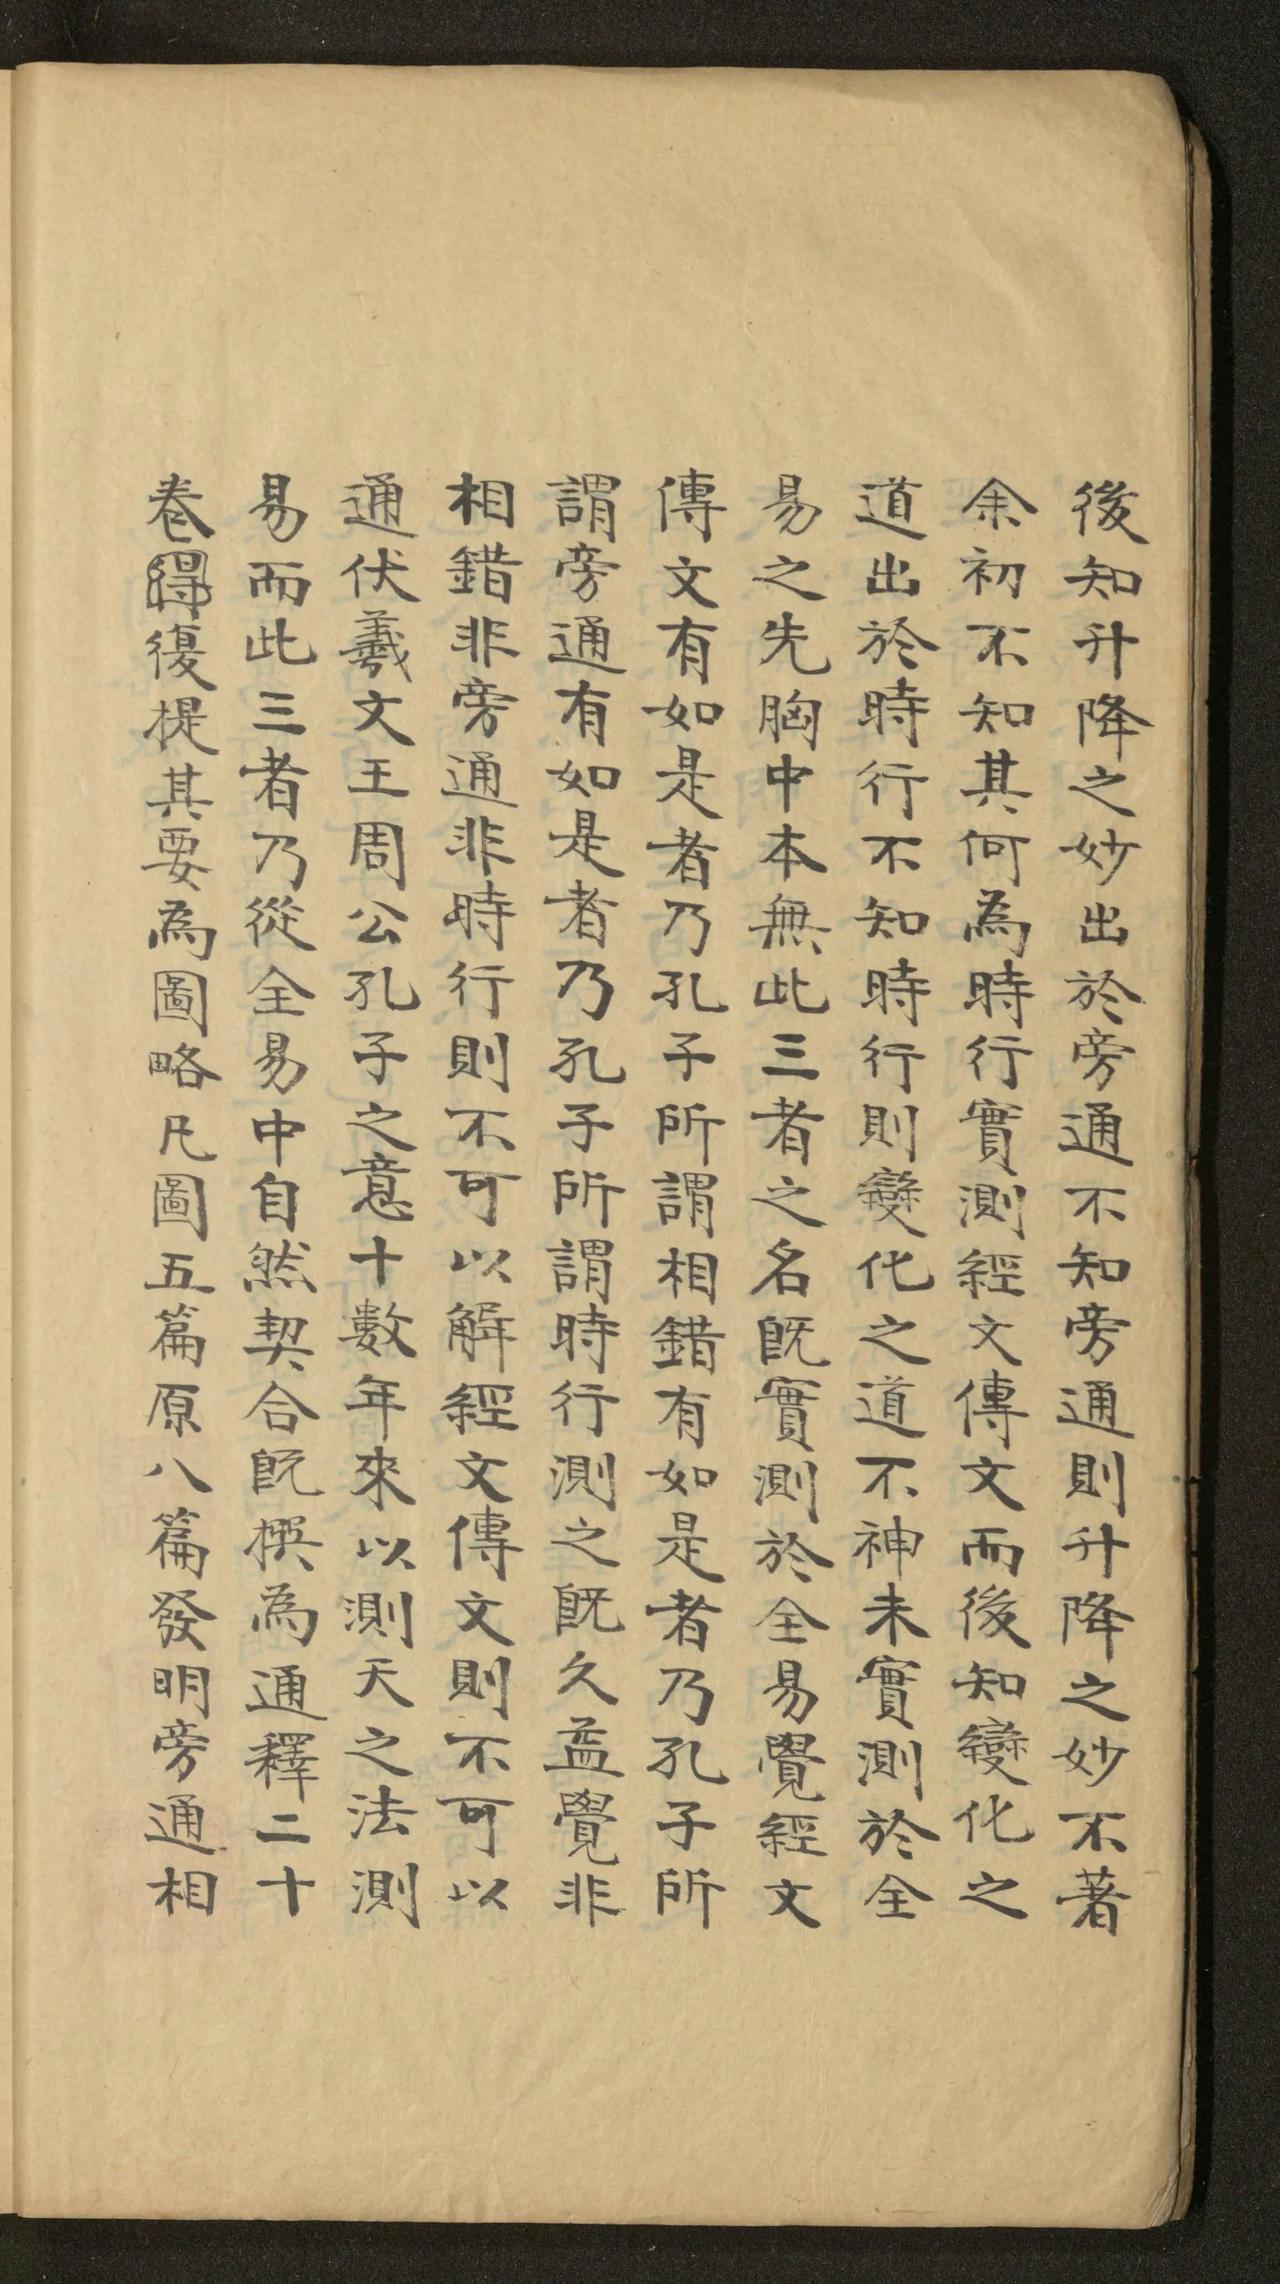 後知升降之妙出於旁通不知旁通則升降之妙不著
余初不知其何為時行實測經文傳文而後知變化之
道出於時行不知時行則變化之道不神未實測於全
易之先胸中本無此三者之名既實測於全易覺經文
傳文有如是者乃孔子所謂相錯有如是者乃孔子所
謂旁通有如是者乃孔子所謂時行測之既久益覺非
相錯非旁通非時行則不可以解經文傳文則不可以
通伏羲文王周公孔子之意十數年來以測天之法測
易而此三者乃從全易中自然契合既撰為通釋二十
卷得復提其要為圖略凡圖五篇原八篇發明旁通相